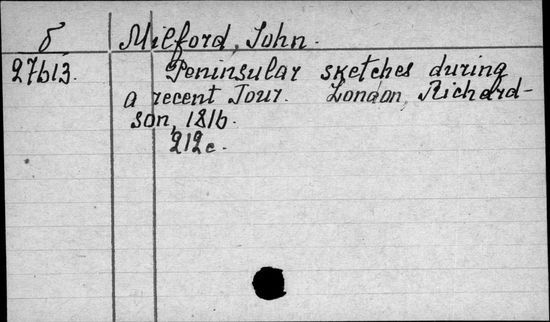 б
Milford, John.
27613.
Peninsular sketches during
a recent Tour. London, Richard-
son, 1816.
212c.